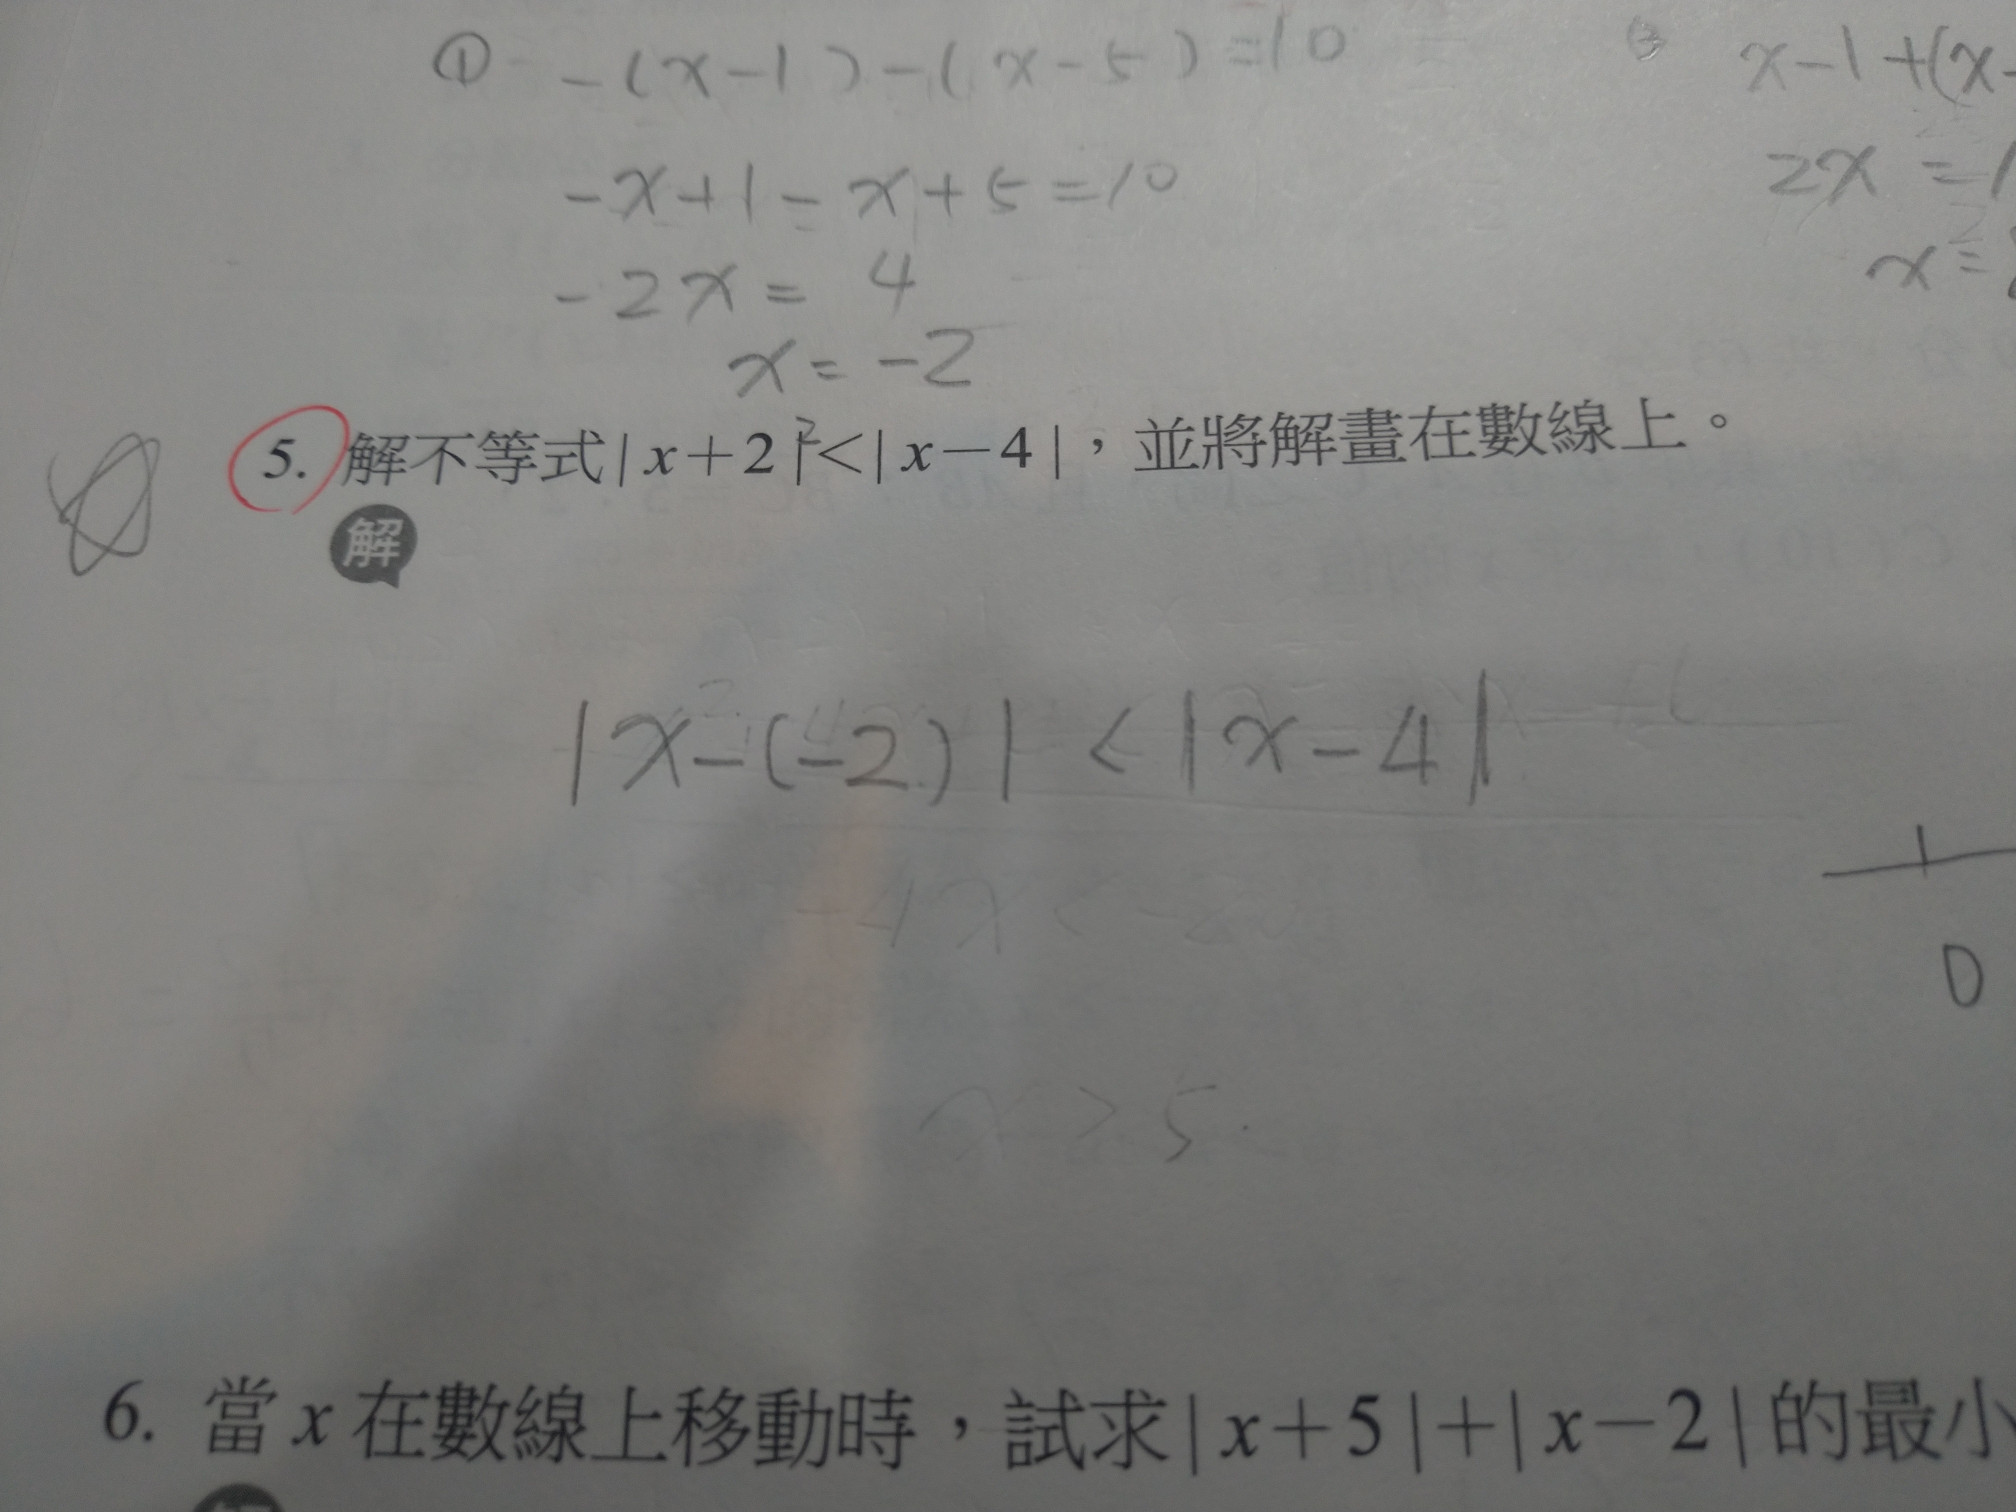 ① -(x-1)-(x-5)=10
x-1+(x-
-x+1-x+5=10
2x=1
-2x=4
x=
x=-2
5. 解不等式|x+2|²<|x-4|，並將解畫在數線上。
解
|x-(-2)|<|x-4|
-4x<-
0
x>5
6. 當x在數線上移動時，試求|x+5|+|x-2|的最小